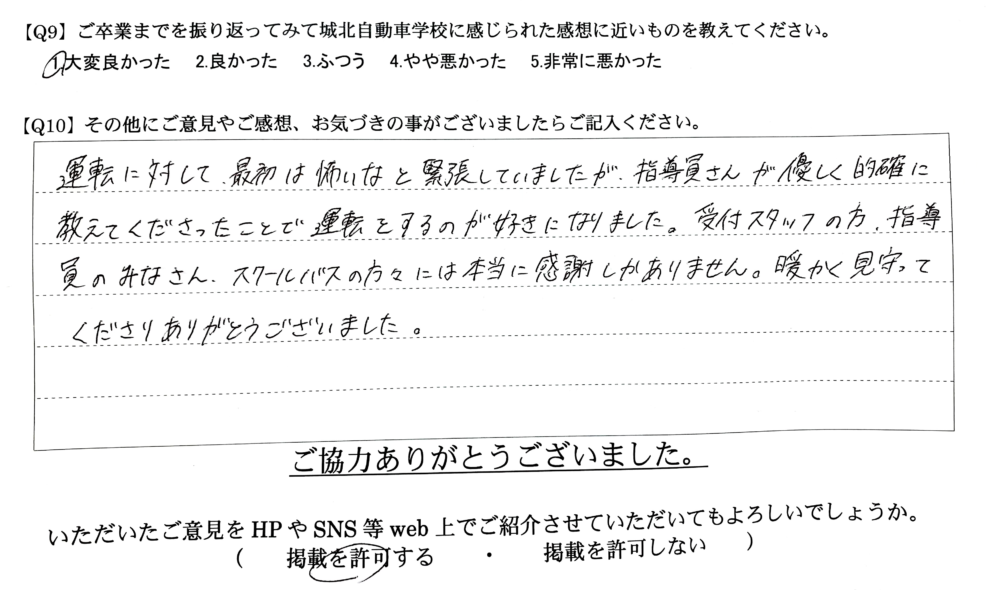 【Q9】ご卒業までを振り返ってみて城北自動車学校に感じられた感想に近いものを教えてください。
1.大変良かった 2.良かった 3.ふつう 4.やや悪かった 5.非常に悪かった
【Q10】その他にご意見やご感想、お気づきの事がございましたらご記入ください。
運転に対して、最初は怖いなと緊張していましたが、指導員さんが優しく的確に
教えてくださったことで運転をするのが好きになりました。受付スタッフの方、指導
員のみなさん、スクールバスの方々には本当に感謝しかありません。暖かく見守って
くださりありがとうございました。
ご協力ありがとうございました。
いただいたご意見をHPやSNS等web上でご紹介させていただいてもよろしいでしょうか。
( 掲載を許可する ・ 掲載を許可しない )